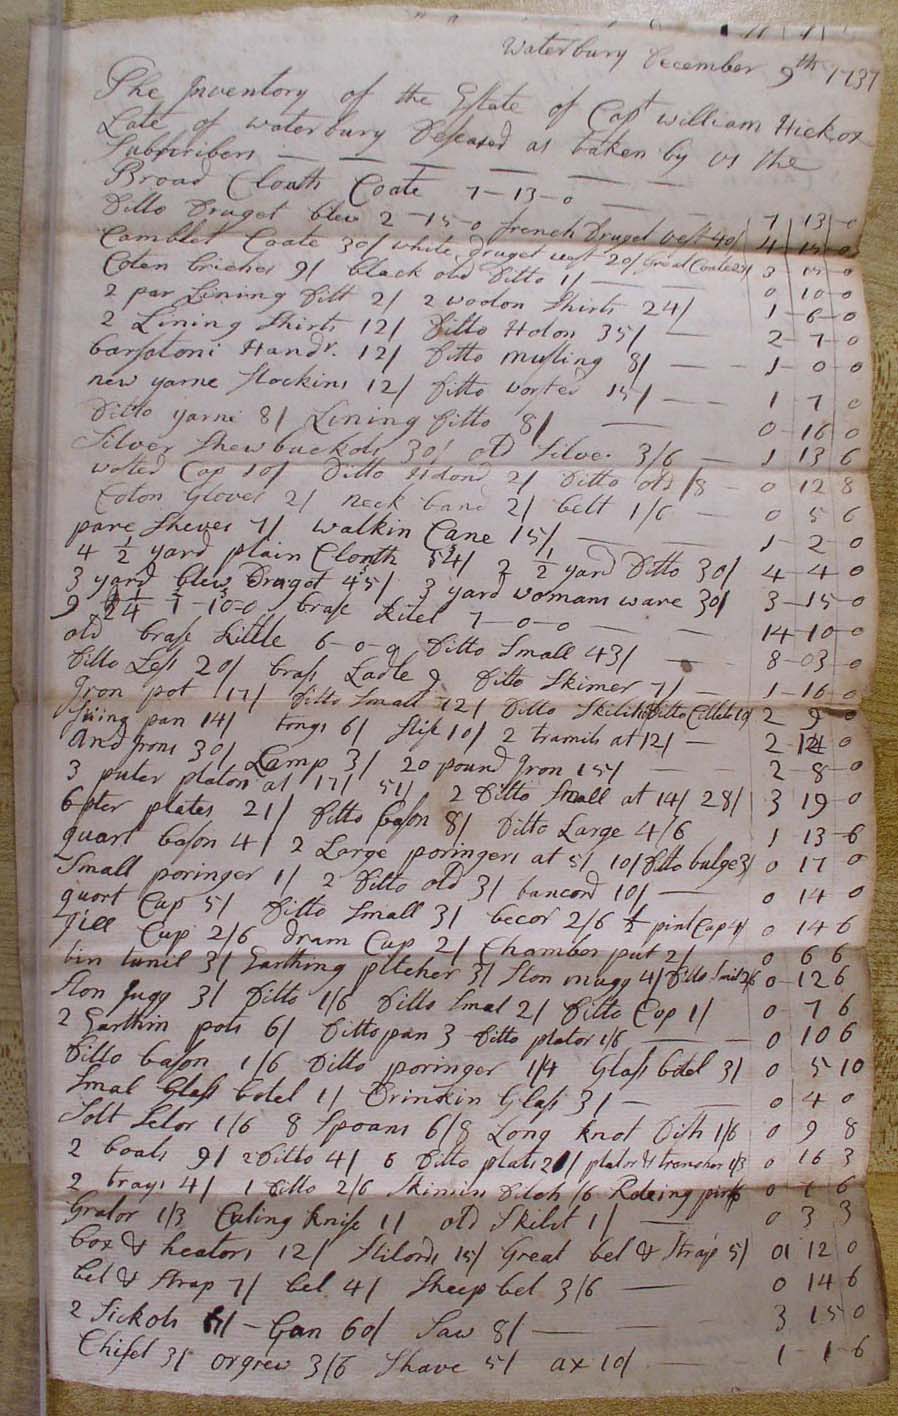 Waterbury December 9th 1737
The Inventory of the Estate of Capt William Hickox
Late of Waterbury Deseased as taken by us the
Subscribers — — — — — —
Broad Cloath Coate 7-13-0 — — 7 13 0
Ditto Druget blew 2-15-0 french Druget vest 40/ 4-15-0
Camblet Coate 30/ white druget vest 20/ Great Coate 25/ 3-15-0
Coten briches 9/ black old Ditto 1/ — — 0 10-0
2 par Lining Ditt 2/ 2 woolon Shirts 24/ 1-6-0
2 Lining Shirts 12/ Ditto Holon 35/ — 2-7-0
Handr. 12/ Ditto musling 8/ — — 1-0-0
new yarne Stockins 12/ Ditto worted 15/ — — 1 7 0
Ditto yarne 8/ Lining Ditto 8/ — 0-16 0
Silver Shewbuckols 30/ old Silver 3/6 — 1 13 6
woted Cap 10/ Ditto Holond 2/ Ditto old /8 — 0 12 8
Coton Gloves 2/ neck band 2/ belt 1/6 — 0 5 6
pare Shewes 7/ walkin Cane 15/ — — 1-2-0
4 1/2 yard plain Cloath 54/ 2 1/2 yard Ditto 30/ 4-4-0
3 yard blew Druget 45/ 3 yard womans ware 30/ 3-15-0
9 7-10-0 brase kitel 7-0-0 — — 14-10-0
old brase kittle 6-0-0 Ditto Small 43/ — 8-03-0
Ditto Less 20/ brass Ladle 9 Ditto Skimer 7/ — 1-16-0
Iron pot 17/ Ditto Small 12/ Ditto Skilit Ditto 2 9 0
friing pan 14/ tongs 6/ Slise 10/ 2 tramils at 12/ — 2-14 0
And Irons 30/ Lamp 3/ 20 pound Iron 15/ — — 2-8-0
3 puter platon at 17/ 51/ 2 Ditto Small at 14/ 28/ 3 19-0
6 pter plates 21/ Ditto bason 8/ Ditto Large 4/6 1-13-6
quart bason 4/ 2 Large poringers at 5/ 10/ Ditto bulge 3/ 0 17 0
Small poringer 1/ 2 Ditto old 3/ tancord 10/ — 0 14 0
quort Cup 5/ Ditto Small 3/ becor 2/6 1/2 pint Cup 4/ 0 14 6
Jill Cup 2/6 dram Cup 2/ Chamber put 2/ 0 6 6
tin tunil 3/ Earthing pitcher 3/ Ston mugg 4/ Ditto Smal 2/6 0-12 6
Ston Jugg 3/ Ditto 1/6 Ditto Smal 2/ Ditto Cop 1/ 0 7 6
2 Earthin pots 6/ Ditto pan 3 Ditto plator 1/6 — — 0 10 6
Ditto bason 1/6 Ditto poringer 1/4 Glass botel 3/ 0 5 10
Smal Glass botel 1/ Drinkin Glass 3/ — — 0 4 0
Solt Selor 1/6 8 Spoans 6/8 Long knot Dish 1/6 0 9 8
2 boals 9/ 2 Ditto 4/ 6 Ditto plats 2/ plator & trenchor 1/3 0 16 3
2 trays 4/ 1 Ditto 2/6 Skimin Ditch /6 Roleing pin /6 0 6
Grator 1/3 Cuting knife 1/ old Skilit 1/ — 0 3 3
box & heators 12/ Stilords 15/ Great bel & Strap 5/ 01 12 0
bel & Strap 7/ bel 4/ Sheep bel 3/6 — 0 14 6
2 Sickols — Gun 60/ Saw 8/ — — 3 15 0
Chisel 3/ orgrew 3/6 Shave 5/ ax 10/ — 1-1-6